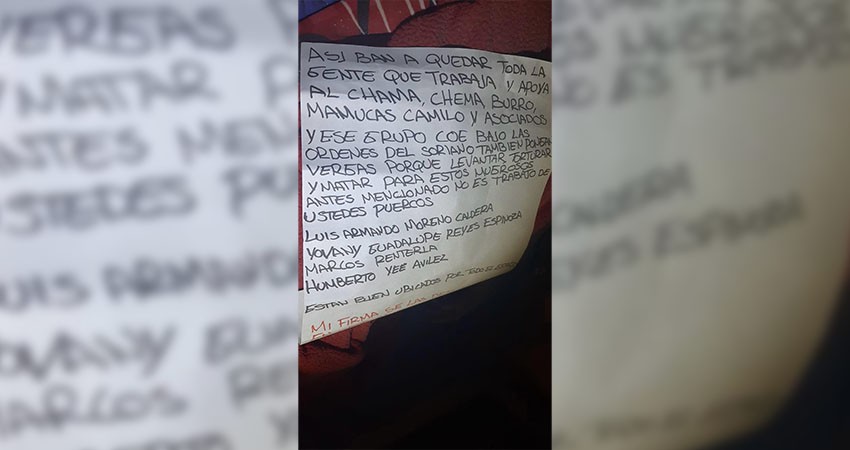 ASI BAN A QUEDAR TODA LA
GENTE QUE TRABAJA Y APOYA
AL CHAMA, CHEMA, BURRO,
MAMUCAS CAMILO Y ASOCIADOS
Y ESE GRUPO COE BAJO LAS
ORDENES DEL SORIANO TAMBIEN
VERGAS PORQUE LEVANTAR TORTURAR
Y MATAR PARA ESTOS MUGROSOS
ANTES MENCIONADO NO ES TRABAJO DE
USTEDES PUERCOS
LUIS ARMANDO MORENO CALDERA
YOVANY GUADALUPE REYES ESPINOZA
MARCOS RENTERIA
HUMBERTO YEE AVILEZ
ESTAN BIEN UBICADOS POR TODO EL
MI FIRMA SE LAS